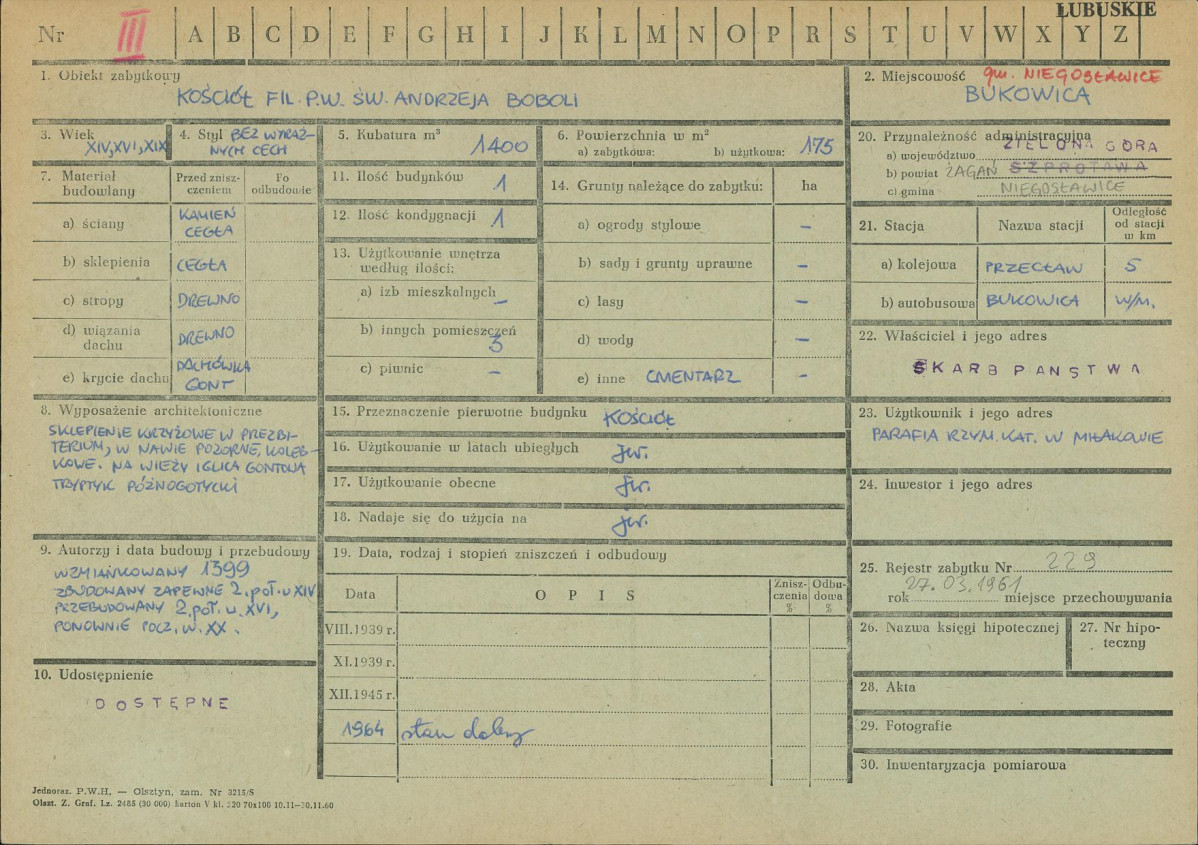 LUBUSKIE
Nr III A B C D E F G H I J K L M N O P R S T U V W X Y Z
1. Obiekt zabytkowy
KOŚCIÓŁ FIL. P.W. ŚW. ANDRZEJA BOBOLI
2. Miejscowość gm. NIEGOSŁAWICE
BUKOWICA
3. Wiek
XIV, XVI, XIX
4. Styl BEZ WYRAŹ-
NYCH CECH
5. Kubatura m³
1400
6. Powierzchnia w m²
a) zabytkowa: b) użytkowa: 175
7. Materiał
budowlany
Przed znisz-
czeniem
Po
odbudowie
a) ściany KAMIEŃ
CEGŁA
b) sklepienia CEGŁA
c) stropy DREWNO
d) wiązania
dachu DREWNO
e) krycie dachu DACHÓWKA
GONT
8. Wyposażenie architektoniczne
SKLEPIENIE KRZYŻOWE W PREZBI-
TERIUM, W NAWIE POZORNE, KOLEB-
KOWE. NA WIEŻY IGLICA GONTOWA
TRYPTYK PÓŹNOGOTYCKI
9. Autorzy i data budowy i przebudowy
WZMIANKOWANY 1399
ZBUDOWANY ZAPEWNE 2. poł. w XIV
PRZEBUDOWANY 2. poł. w. XVI,
PONOWNIE POCZ. W. XX.
10. Udostępnienie
DOSTĘPNE
11. Ilość budynków 1
12. Ilość kondygnacji 1
13. Użytkowanie wnętrza
według ilości:
a) izb mieszkalnych –
b) innych pomieszczeń
3
c) piwnic –
14. Grunty należące do zabytku: ha
a) ogrody stylowe –
b) sady i grunty uprawne –
c) lasy –
d) wody –
e) inne CMENTARZ –
15. Przeznaczenie pierwotne budynku KOŚCIÓŁ
16. Użytkowanie w latach ubiegłych jw.
17. Użytkowanie obecne jw.
18. Nadaje się do użycia na jw.
19. Data, rodzaj i stopień zniszczeń i odbudowy
Data OPIS Znisz-
czenia
% Odbu-
dowa
%
VIII.1939 r.
XI.1939 r.
XII.1945 r.
1964 stan dobry
20. Przynależność administracyjna
a) województwo ZIELONA GÓRA
b) powiat ŻAGAŃ SZPROTAWA
c) gmina NIEGOSŁAWICE
21. Stacja Nazwa stacji Odległość
od stacji
w km
a) kolejowa PRZECŁAW 5
b) autobusowa BUKOWICA W/M.
22. Właściciel i jego adres
SKARB PAŃSTWA
23. Użytkownik i jego adres
PARAFIA RZYM. KAT. W MIŁAKOWIE
24. Inwestor i jego adres
25. Rejestr zabytku Nr 229
rok 27.03.1961 miejsce przechowywania
26. Nazwa księgi hipotecznej
27. Nr hipo-
teczny
28. Akta
29. Fotografie
30. Inwentaryzacja pomiarowa
Jednoraz. P.W.H. — Olsztyn, zam. Nr 3215/S
Olszt. Z. Graf. Lz. 2485 (30 000) karton V kl. 220 70x100 10.11—30.11.60